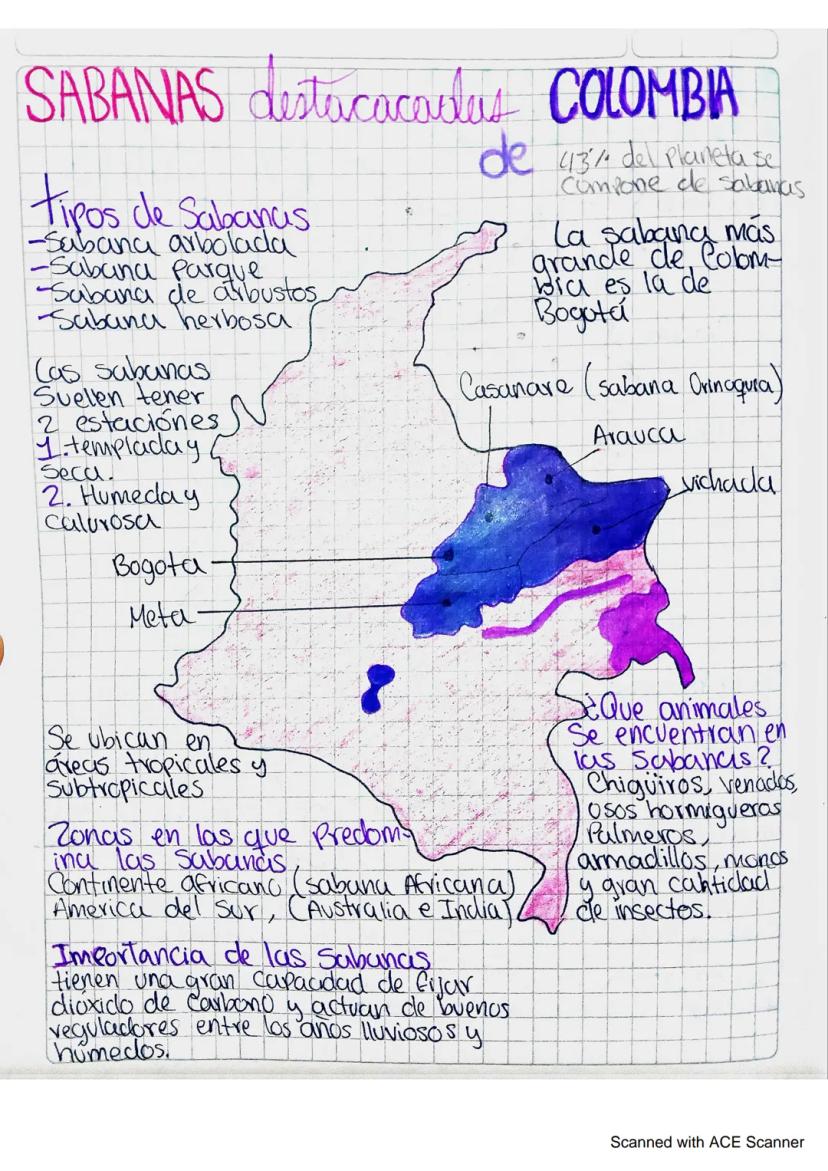 SABANAS destacacadas de COLOMBIA
43% del planeta se
compone de sabanas
tipos de Sabanas
-Sabana arbolada
-Sabana parque
-Sabana de arbustos
-Sabana herbosa
La sabana más
grande de Colom-
bia es la de
Bogotá
Las sabanas
Suelen tener
2 estaciónes
1. templada y
seca.
2. Humeda y
calurosa
Casanare (sabana Orinoquia)
Arauca
vichada
Bogota
Meta
Se ubican en
áreas tropicales y
subtropicales
Zonas en las que predom-
ina las Sabanas
Continente africano (sabana Africana)
America del Sur, (Australia e India)
¿Que animales
Se encuentran en
las Sabanas?
Chigüiros, venados,
osos hormigueros
Palmeros,
armadillos, monos
y gran cantidad
de insectos.
Importancia de las sabanas
tienen una gran capacidad de fijar
dióxido de carbono y actuan de buenos
reguladores entre los años lluviosos y
húmedos.
Scanned with ACE Scanner